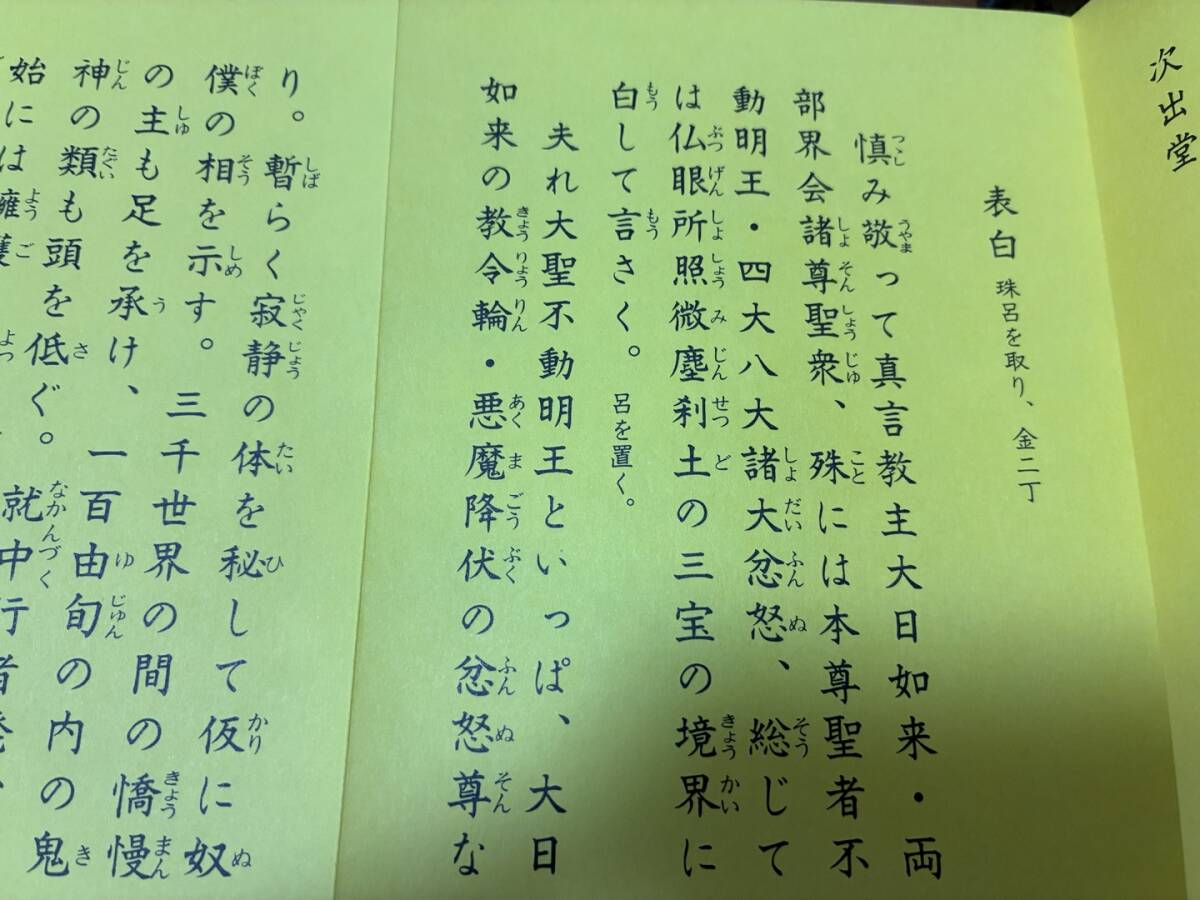 次出堂
表白 珠呂を取り、金二丁
慎み敬って真言教主大日如来・両
部界会諸尊聖衆、殊には本尊聖者不
動明王・四大八大諸大忿怒、総じて
は仏眼所照微塵刹土の三宝の境界に
白して言さく。 呂を置く。
夫れ大聖不動明王といっぱ、大日
如来の教令輪・悪魔降伏の忿怒尊な
り。暫らく寂静の体を秘して仮に奴
僕の相を示す。三千世界の間の憍慢
の主も足を承け、一百由旬の内の鬼
神の類も頭を低ぐ。就中行者
始には擁護